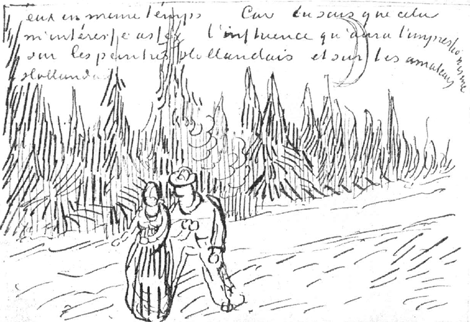 eux en même temps Car tu sais que cela
m'intéresse assez l'influence qu'aura l'impressionisme
sur les peintres Hollandais et sur les amateurs
Holland